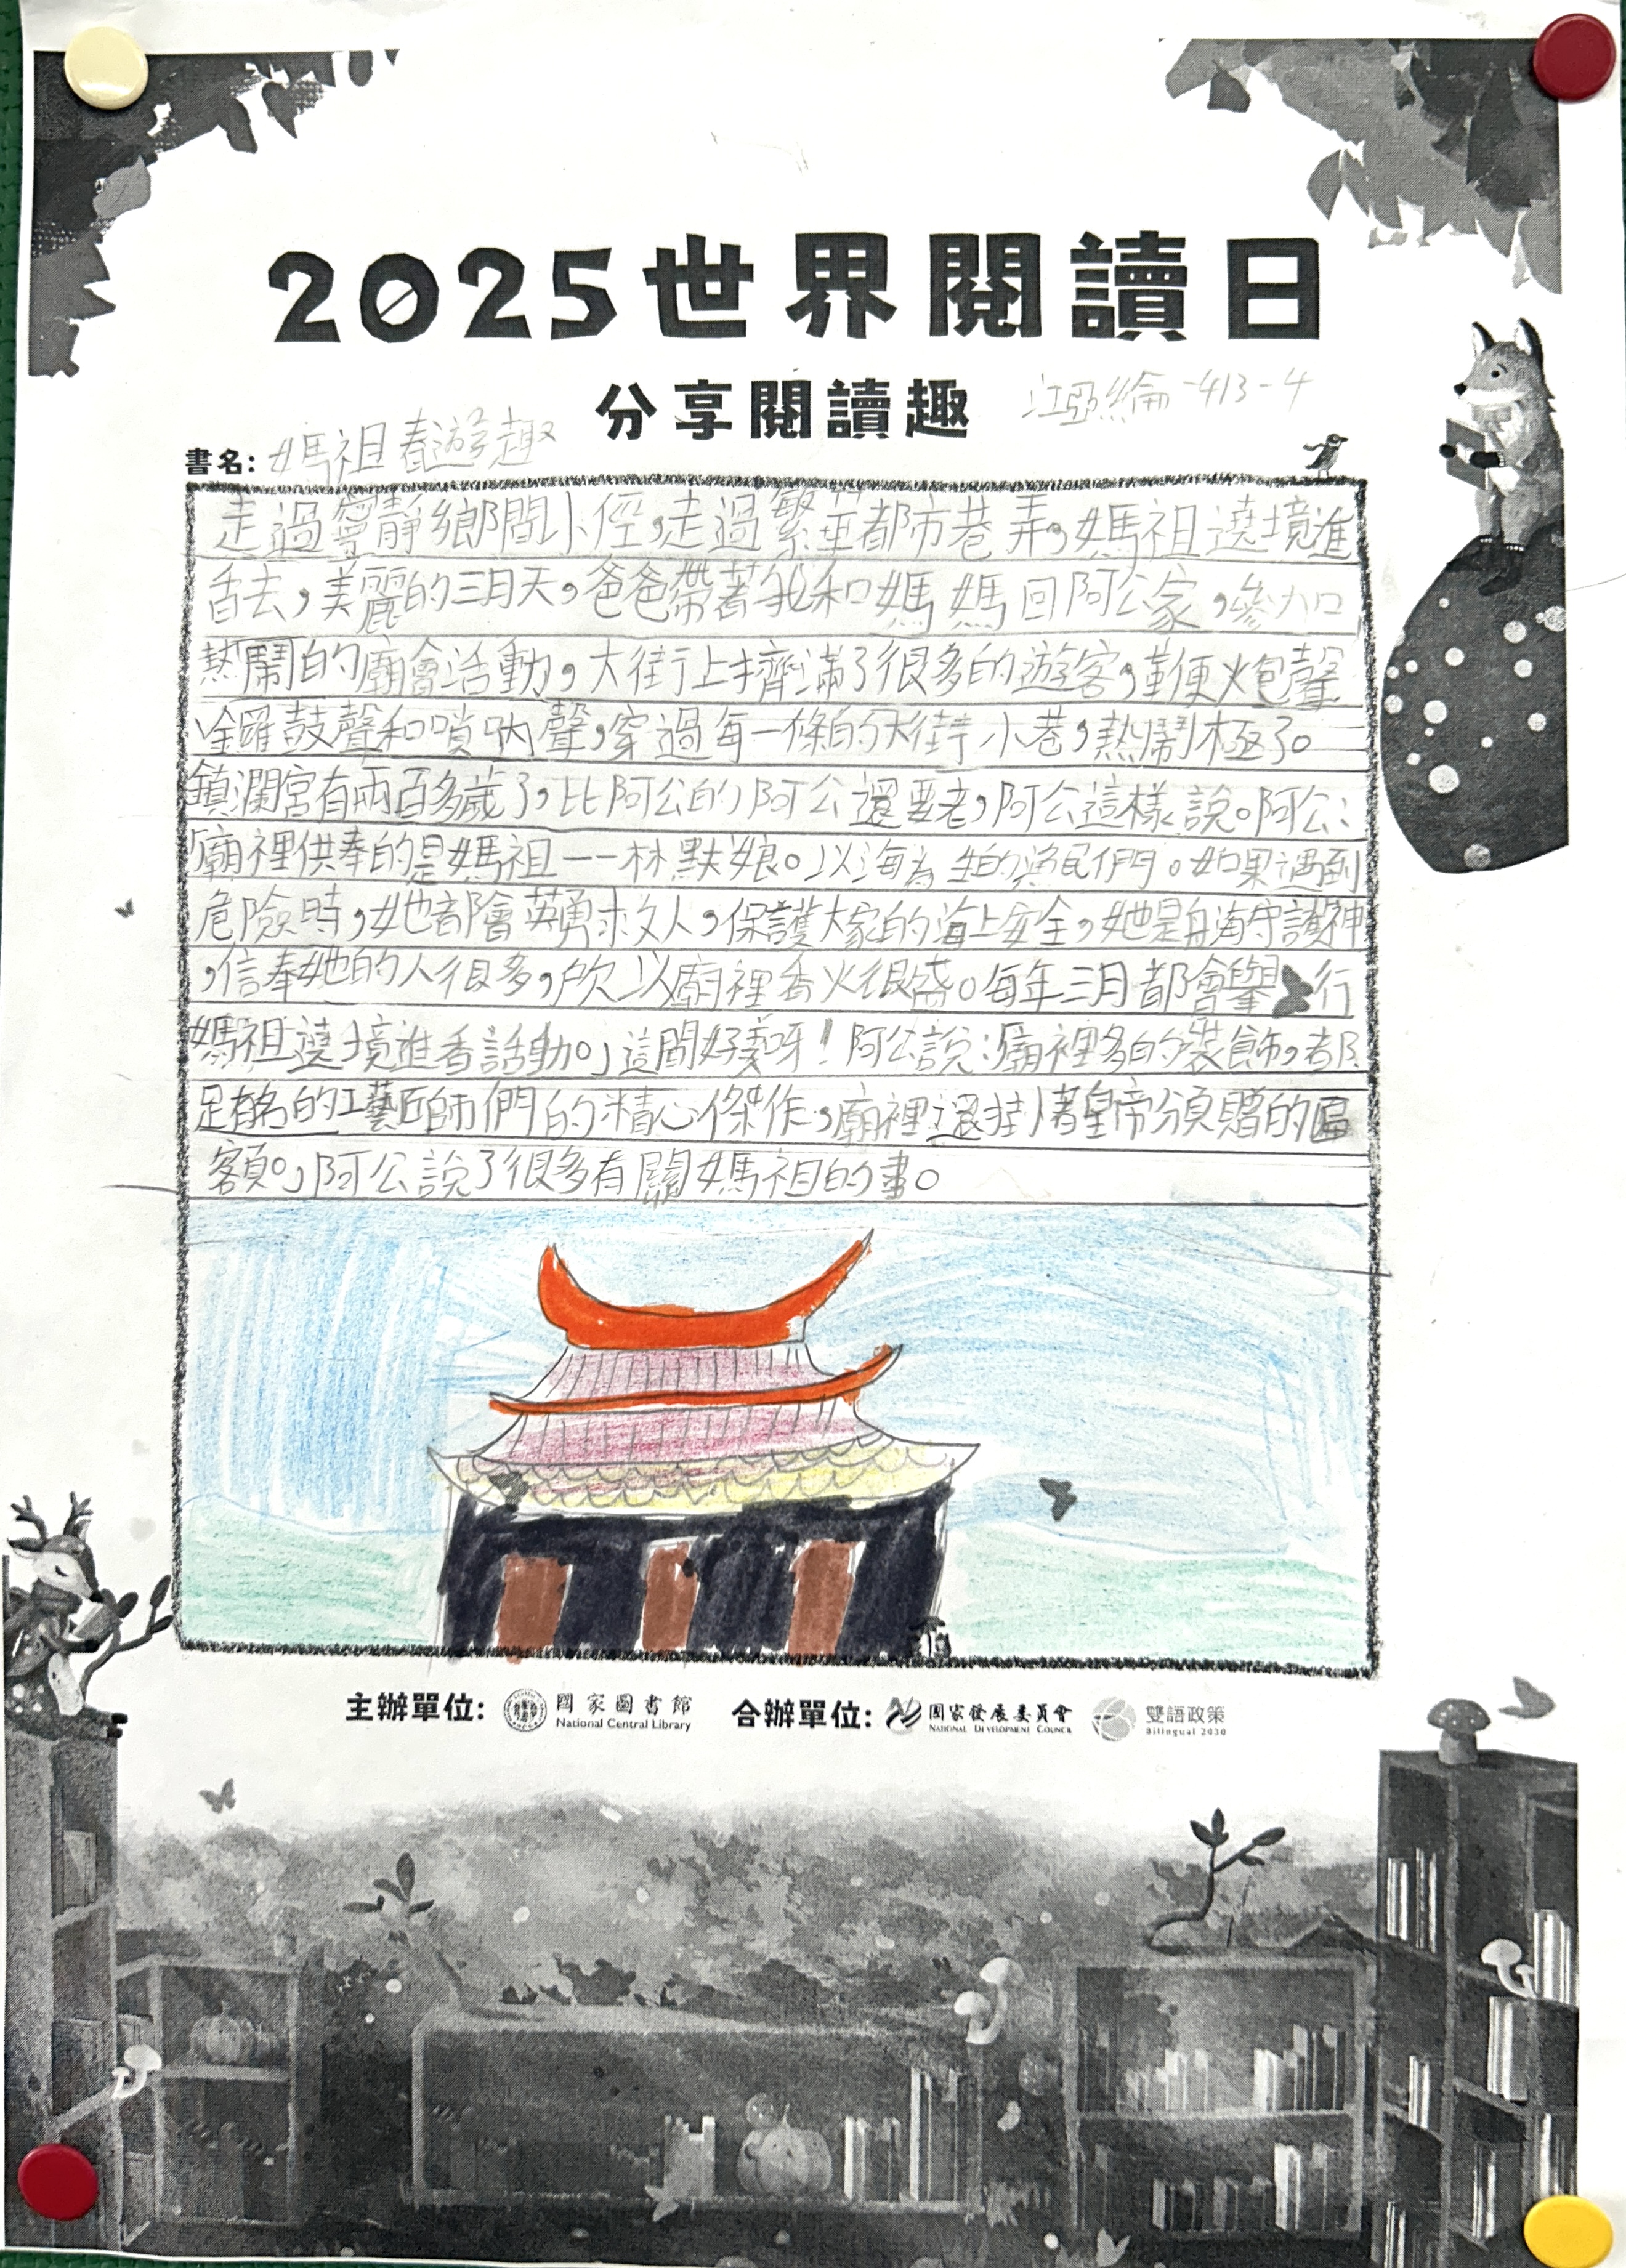 2025世界閱讀日
分享閱讀趣
江亞綸-413-4
書名: 媽祖春遊趣
走過寧靜鄉間小徑,走過繁華都市巷弄,媽祖遶境進
香去,美麗的三月天,爸爸帶著我和媽媽回阿公家,參加
熱鬧的廟會活動,大街上擠滿了很多的遊客,鞭炮聲
鑼鼓聲和嗩吶聲,穿過每一條的大街小巷,熱鬧極了。
鎮瀾宮有兩百多歲了,比阿公的阿公還要老,阿公這樣說。阿公:
廟裡供奉的是媽祖——林默娘。以海為生的漁民們。如果遇到
危險時,她都會英勇救人,保護大家的海上安全,她是海守護神
,信奉她的人很多,所以廟裡香火很盛。每年三月都會舉行
媽祖遶境進香話動。」這間好美呀!阿公說:廟裡多的裝飾,都
是有名的工藝匠師們的精心傑作,廟裡還掛著皇帝頒贈的匾
客額。」阿公說了很多有關媽祖的書。
主辦單位: 國家圖書館 National Central Library 合辦單位: 國家發展委員會 NATIONAL DEVELOPMENT COUNCIL 雙語政策 Bilingual 2030